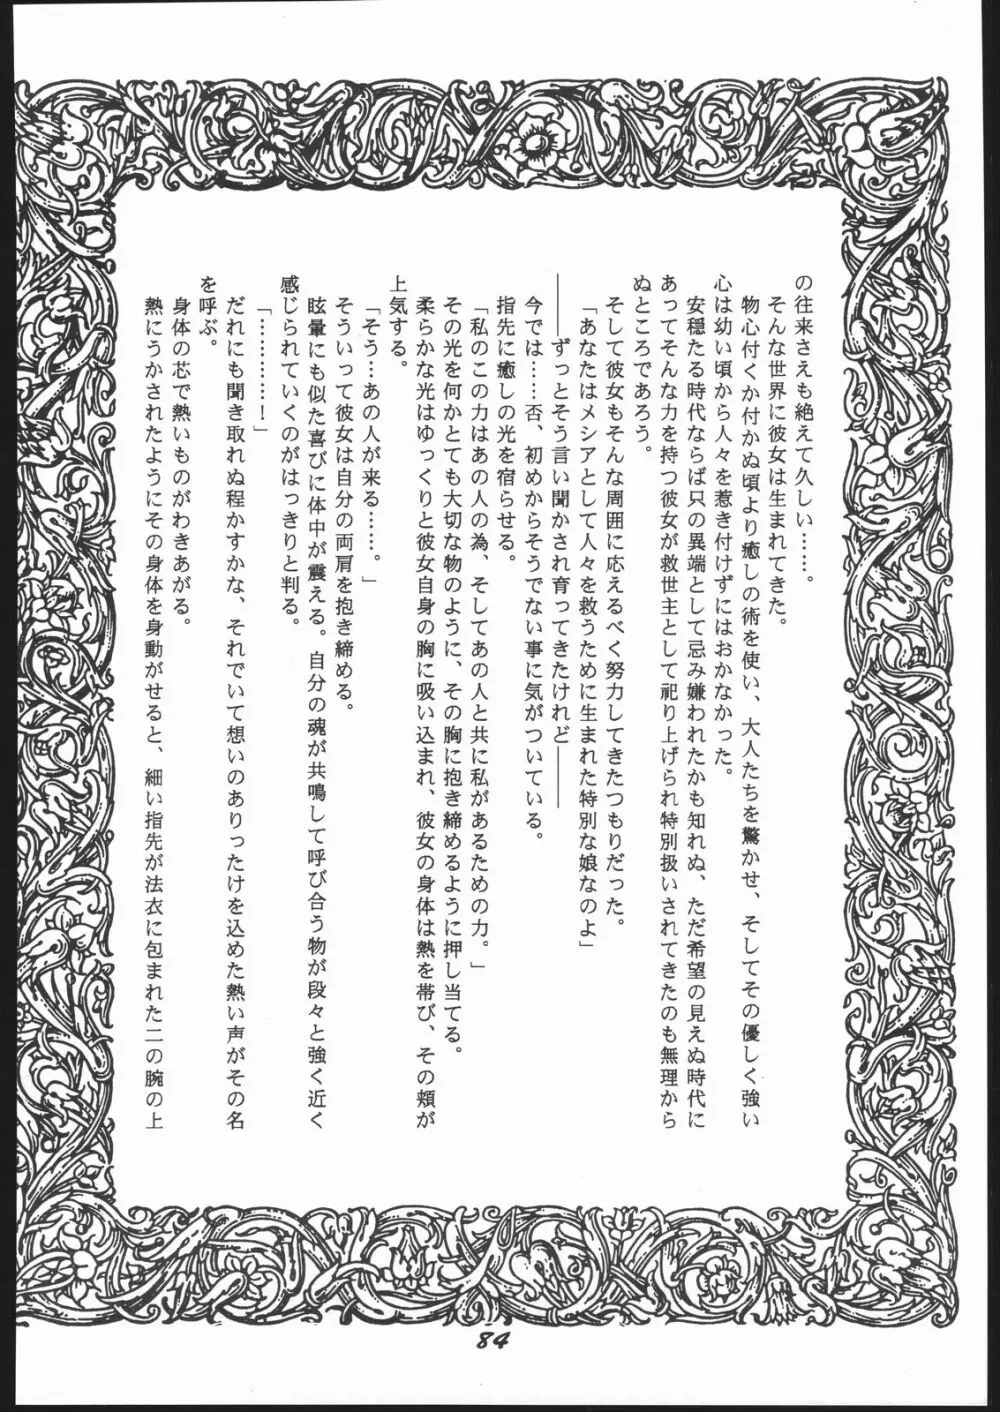 の往来さえも絶えて久しい……。
そんな世界に彼女は生まれてきた。
物心付くか付かぬ頃より癒しの術を使い、大人たちを驚かせ、そしてその優しく強い
心は幼い頃から人々を惹き付けずにはおかなかった。
安穏たる時代ならば只の異端として忌み嫌われたかも知れぬ、ただ希望の見えぬ時代に
あってそんな力を持つ彼女が救世主として祀り上げられ特別扱いされてきたのも無理から
ぬところであろう。
そして彼女もそんな周囲に応えるべく努力してきたつもりだった。
「あなたはメシアとして人々を救うために生まれた特別な娘なのよ」
――ずっとそう言い聞かされ育ってきたけれど――
今では……否、初めからそうでない事に気がついている。
指先に癒しの光を宿らせる。
「私のこの力はあの人の為、そしてあの人と共に私があるための力。」
その光を何かとても大切な物のように、その胸に抱き締めるように押し当てる。
柔らかな光はゆっくりと彼女自身の胸に吸い込まれ、彼女の身体は熱を帯び、その頬が
上気する。
「そう…あの人が来る……。」
そういって彼女は自分の両肩を抱き締める。
眩暈にも似た喜びに体中が震える。自分の魂が共鳴して呼び合う物が段々と強く近く
感じられていくのがはっきりと判る。
「…………！」
だれにも聞き取れぬ程かすかな、それでいて想いのありったけを込めた熱い声がその名
を呼ぶ。
身体の芯で熱いものがわきあがる。
熱にうかされたようにその身体を身動がせると、細い指先が法衣に包まれた二の腕の上
84